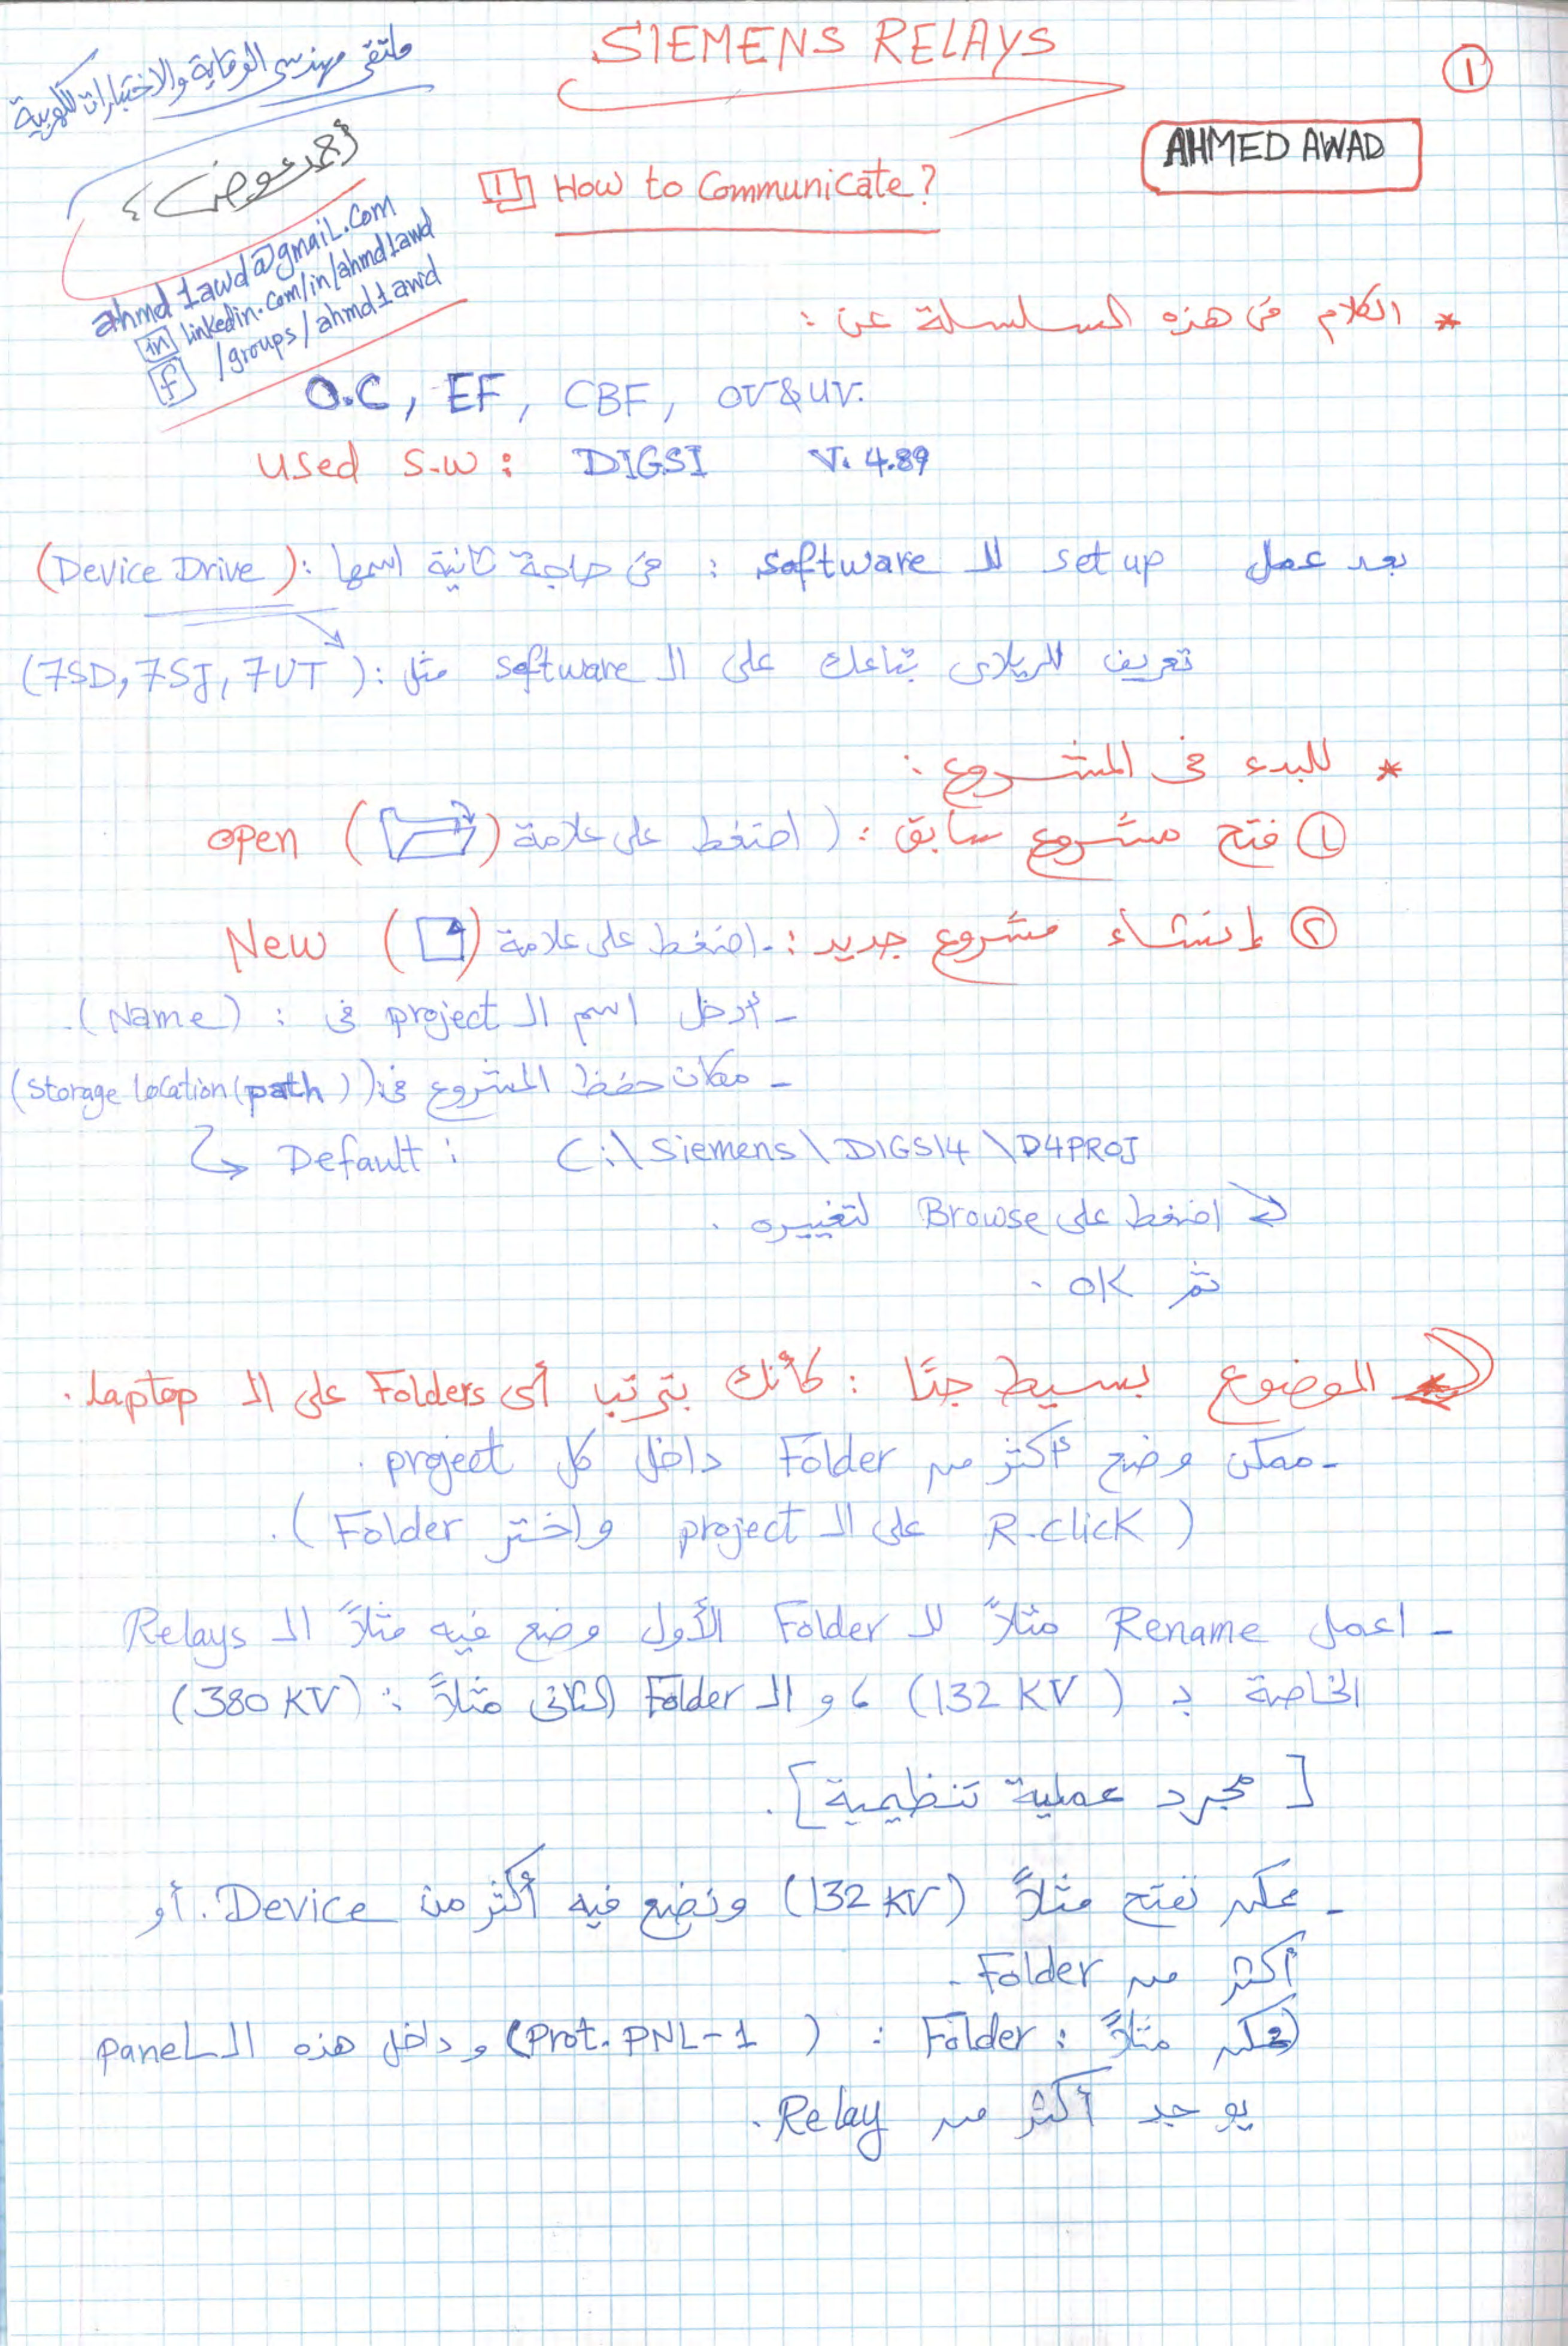 SIEMENS RELAYS
1
ملتقى مهندسى الوقاية والاختبارات الكهربية
AHMED AWAD
أحمد عوض
1 How to Communicate?
ahmd1awd@gmail.com
in linkedin.com/in/ahmd1awd
f /groups/ahmd1awd
* الكلام فى هذه السلسلة عن :
O.C, EF, CBF, OV&UV.
Used S.W : DIGSI V. 4.89
بعد عمل set up للـ software : فى حاجة ثانية اسمها : (Device Drive)
تعريف للريلاى بتاعك على الـ software مثل : (7SD, 7SJ, 7UT)
* للبدء فى المشروع :
① فتح مشروع سابق : (اضغط على علامة ( ) open
② إنشاء مشروع جديد : - اضغط على علامة ( ) New
- أدخل اسم الـ project فى : (Name).
- مكان حفظ المشروع فى : (Storage location (path))
↳ Default : C:\Siemens\DIGSI4\D4PROJ
اضغط على Browse لتغييره .
ثم OK .
* الموضوع بسيط جدًا : كأنك بترتب أى Folders على الـ laptop .
- ممكن وضع أكثر من Folder داخل كل project .
(R.click على الـ project واختر Folder) .
- اعمل Rename مثلاً للـ Folder الأول وضع فيه مثلاً الـ Relays
الخاصة بـ (132 KV) ، و الـ Folder الثانى مثلاً : (380 KV)
[ مجرد عملية تنظيمية ] .
- ممكن نفتح مثلاً (132 KV) ونضع فيه أكثر من Device . أو
أكثر من Folder .
ممكن مثلاً : Folder : (Prot. PNL-1) و داخل هذه الـ panel
يوجد أكثر من Relay .